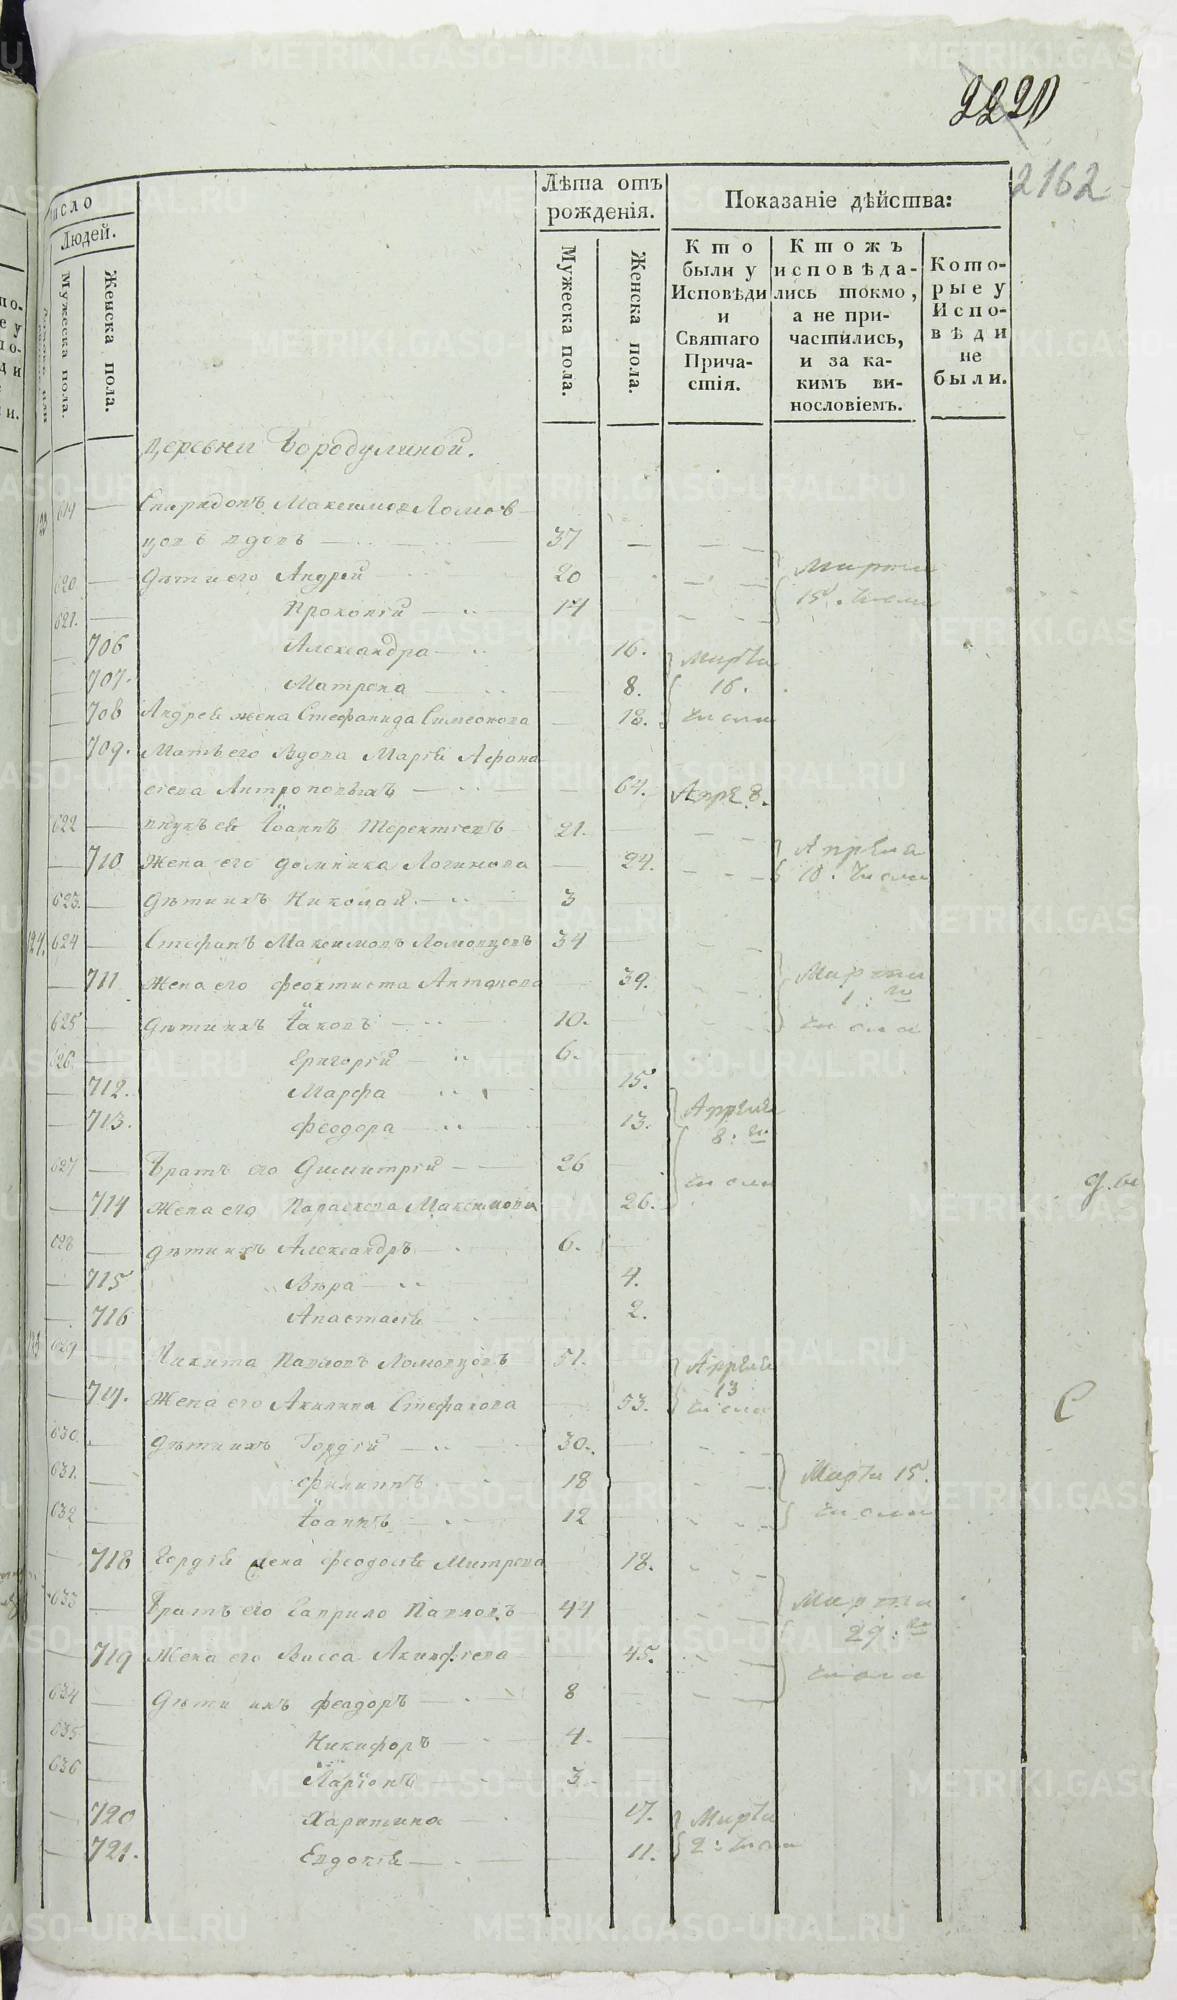 2220
2162
Число
Людей.
Мужеска пола.
Женска пола.
Лѣта отъ
рожденія.
Мужеска пола.
Женска пола.
Показаніе дѣйства:
Кто
были у
Исповѣди
и
Святаго
Прича-
стія.
Ктожъ
исповѣда-
лись токмо,
а не при-
частились,
и за ка-
кимъ ви-
нословіемъ.
Кото-
рые у
Испо-
вѣди
не
были.
деревни Бородулиной.
619 — Спиридонъ Максимовъ Ломов-
цовъ вдовъ — 37
620 — Дѣти его Андрей 20 Марта
621. — Прокопій — 14 15 числа
706 Александра — 16. Марта
707. Матрена — 8. 16.
708 Андрея жена Стефанида Симеонова — 18. числа
709. Мать его вдова Марія Афона-
сіева Антроповыхъ — 64. Апре. 8.
622 — внукъ ея Іоаннъ Терентіевъ 21.
710 Жена его Домника Логинова — 24. Апрѣля 10. числа
623. — Дѣти ихъ Николай — 3
124. 624 — Стефанъ Максимовъ Ломовцовъ 34
711 Жена его Феоктиста Антонова 39. Марта
625 — Дѣти ихъ Іаковъ — 10. числа
626. — Григорій 6.
712. Марфа 15.
713. Феодора — 13. Апреля 8: го
627 — Братъ его Димитрій — 26 числа
714 Жена его Параскева Максимова 26.
628 — Дѣти ихъ Александръ 6.
715 Вѣра — 4.
716 Анастасія 2.
125 629 Никита Павловъ Ломовцовъ 51. Апреля
717. Жена его Акилина Стефанова 53. 13 числа
630. Дѣти ихъ Гордій — 30.
631. Филиппъ 18 Марта 15.
632 Іоаннъ 12 числа
718 Гордія жена Феодосія Митрева 18.
633 — Братъ его Гаврило Павловъ 44 Марта
29: го
719 Жена его Васса Акинфіева 45. числа
634 — Дѣти ихъ Феодоръ — 8
635 Никифоръ 4.
636 Ларіонъ 3
720 Харитина — 17. Марта
721. Евдокія — 11. 2: числа
С
METRIKI.GASO-URAL.RU